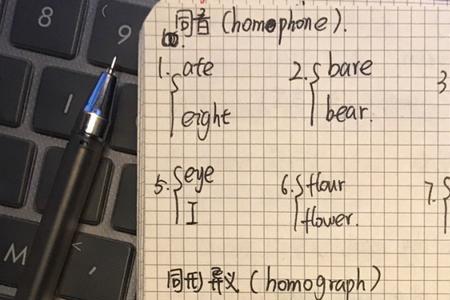 8
9
I
M
同音 (homophone).
1. ate 2. bare 3
eight bear.
5. eye 6. flour 7.
I flower.
同形异义 (homograph)